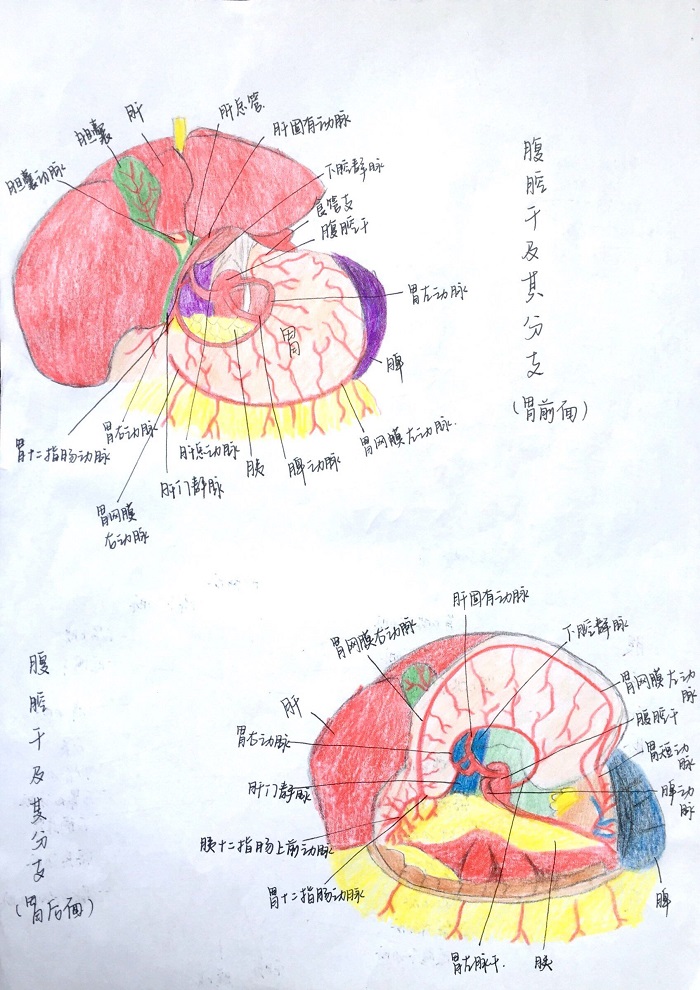 肝
肝总管
胆囊
肝固有动脉
胆囊动脉
下腔静脉
食管支
腹腔干
胃左动脉
胃
脾
胃网膜左动脉.
胃右动脉
胃十二指肠动脉
肝总动脉
胰
脾动脉
肝门静脉
胃网膜
右动脉
腹腔干及其分支
(胃前面)
肝固有动脉
胃网膜右动脉
下腔静脉
胃网膜左动
脉
肝
腹腔干
胃右动脉
胃短动
脉
肝门静脉
脾动
脉
胰十二指肠上前动脉
胃十二指肠动脉
脾
胃左脉干.
胰
腹腔干及其分支
(胃后面)